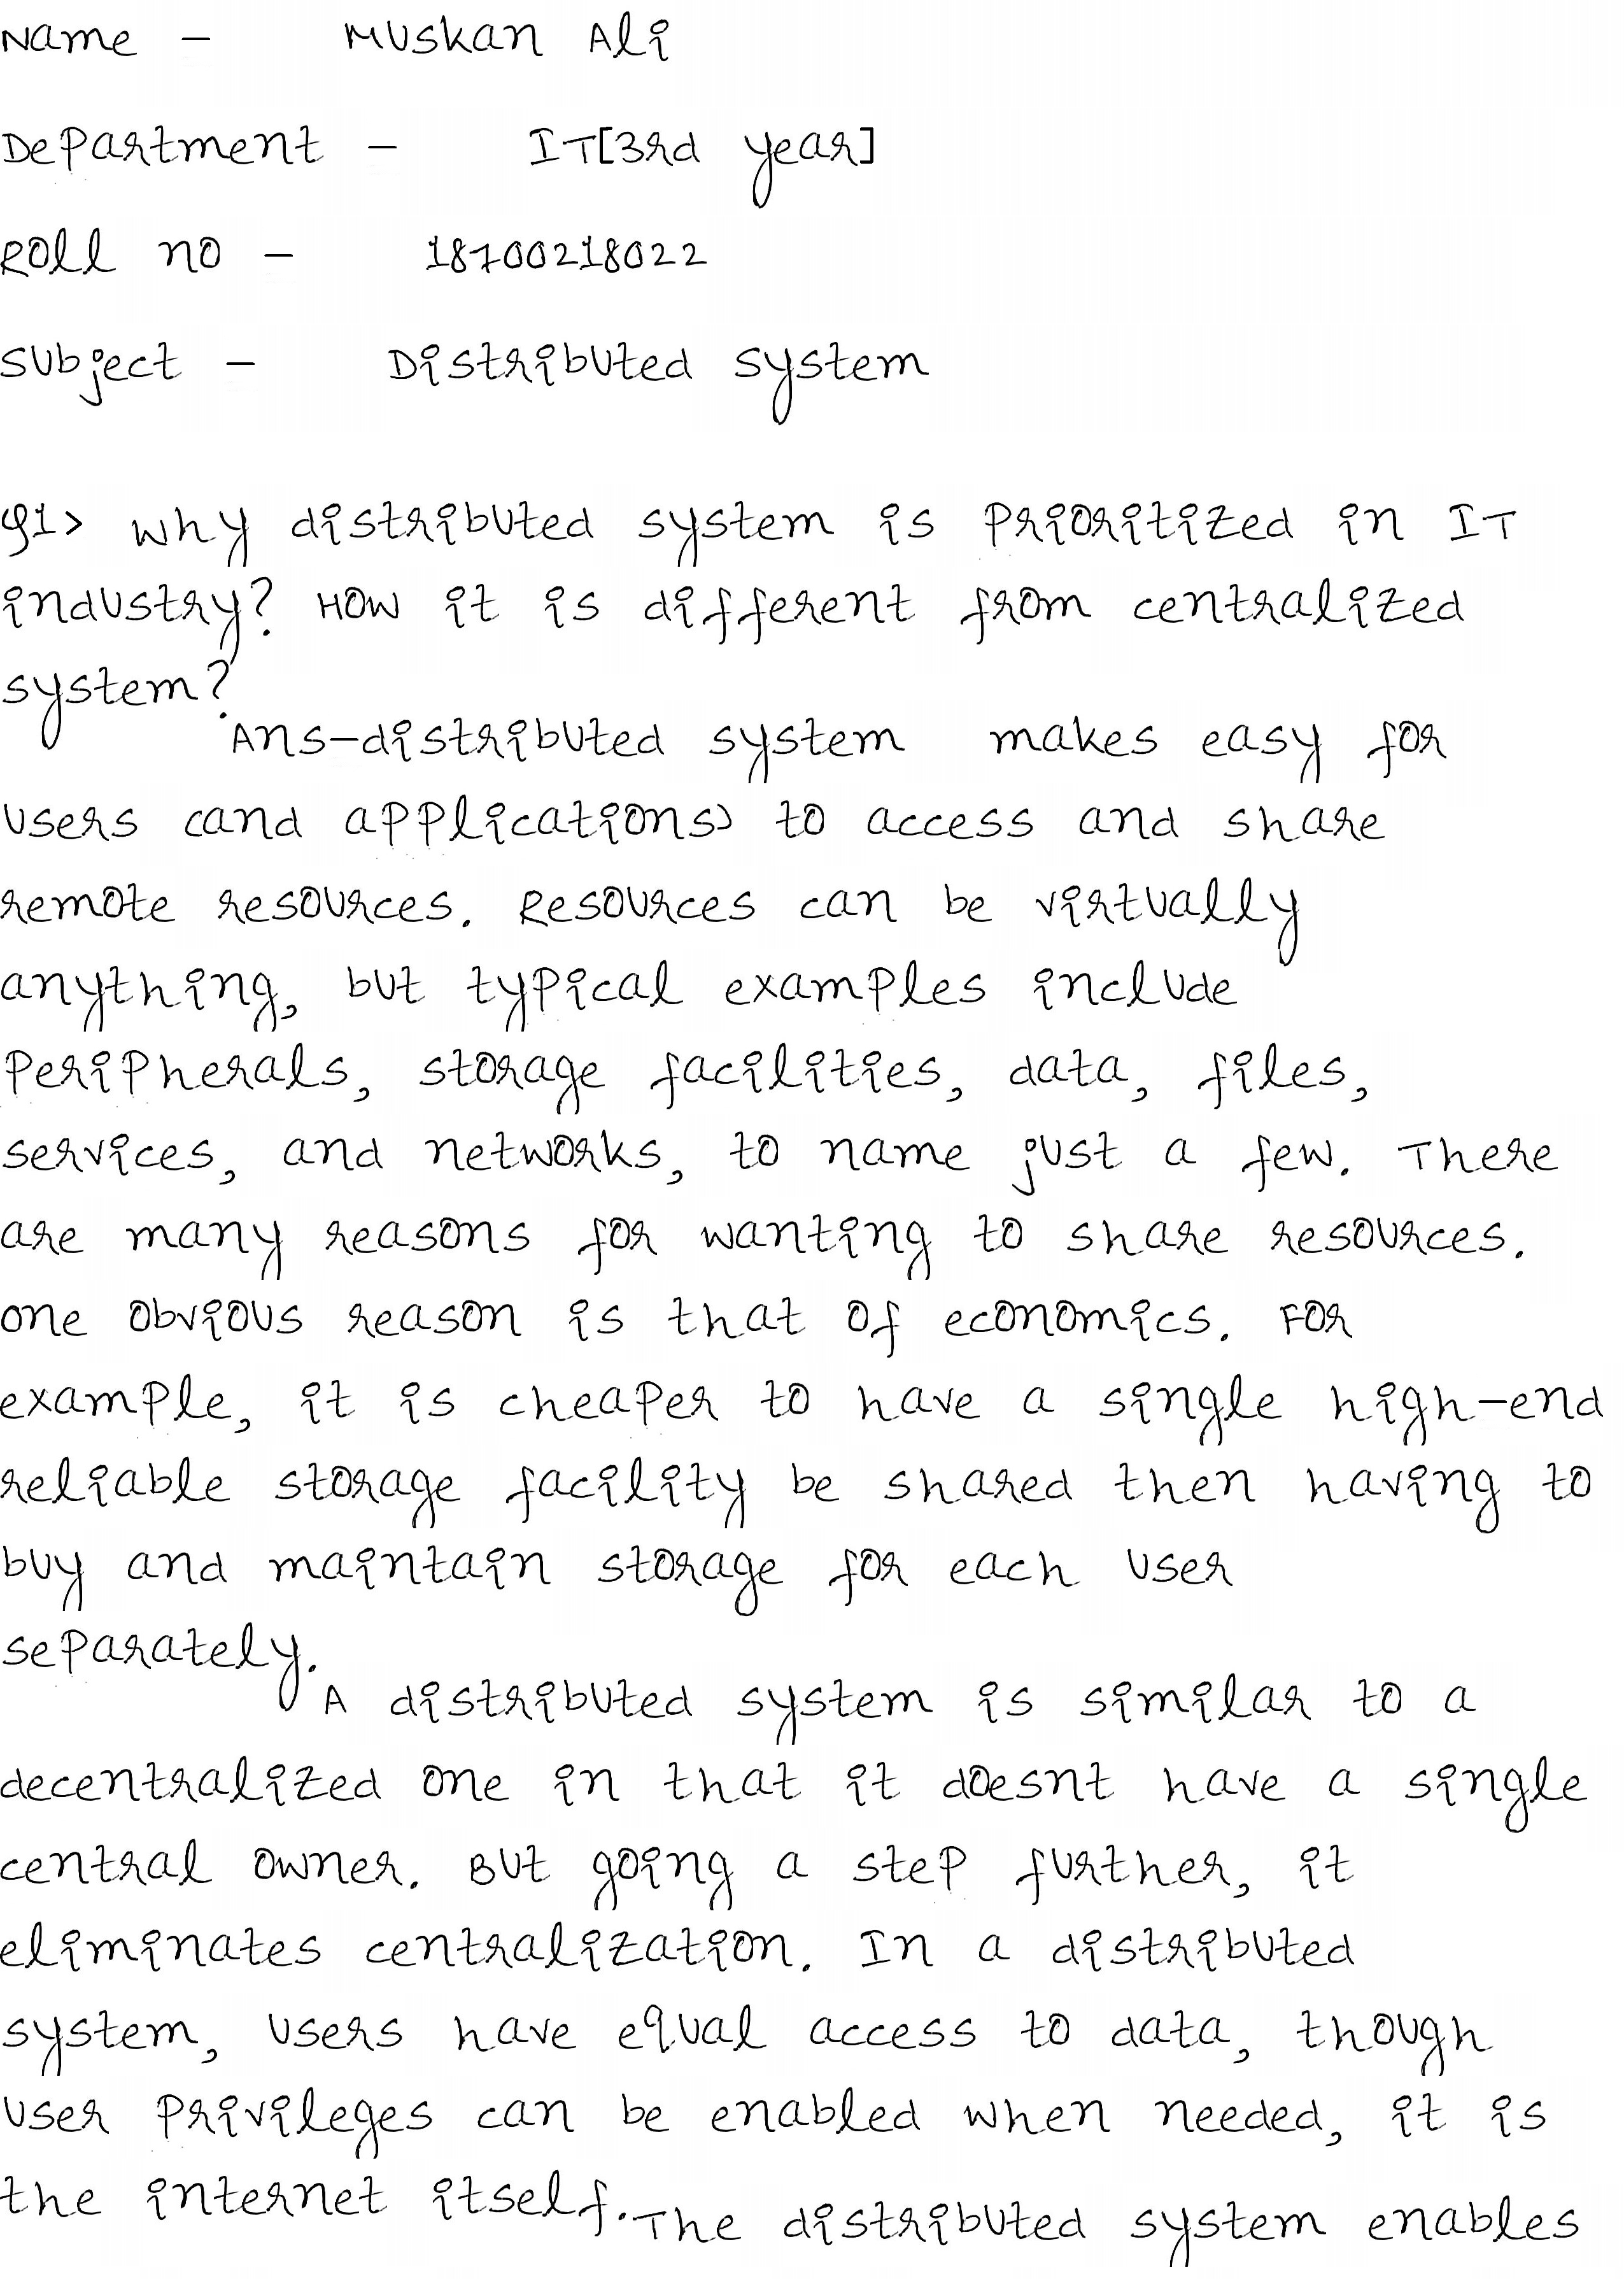 Name - Muskan Ali
Department - IT[3rd year]
Roll no - 18700218022
Subject - Distributed system
Q1> Why distributed system is prioritized in IT
industry? How it is different from centralized
system?
Ans-distributed system makes easy for
users (and applications) to access and share
remote resources. Resources can be virtually
anything, but typical examples include
peripherals, storage facilities, data, files,
services, and networks, to name just a few. There
are many reasons for wanting to share resources.
One obvious reason is that of economics. For
example, it is cheaper to have a single high-end
reliable storage facility be shared then having to
buy and maintain storage for each user
separately.
A distributed system is similar to a
decentralized one in that it doesnt have a single
central owner. But going a step further, it
eliminates centralization. In a distributed
system, users have equal access to data, though
user privileges can be enabled when needed, it is
the internet itself. The distributed system enables